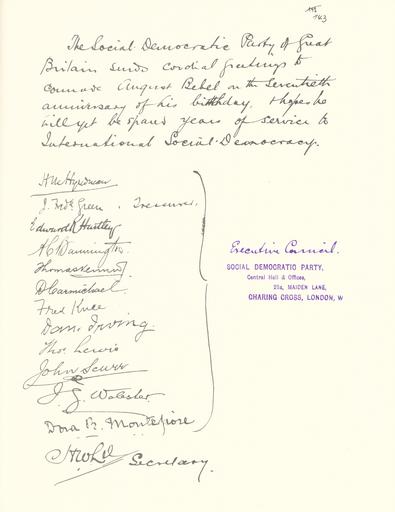 143
The Social-Democratic Party of Great
Britain sends cordial greetings to
comrade August Bebel on the seventieth
anniversary of his birthday, & hopes he
will yet be spared years of service to
International Social-Democracy.
H M Hyndman
J. Fredk Green. Treasurer.
Edward R Hartley
A C Bannington.
Thomas Kennedy
D Carmichael.
Fred Knee
Dan. Irving.
Thos. Lewis
John Scurr
J. G. Webster
Dora B. Montefiore
H W Lee Secretary.
Executive Council.
SOCIAL DEMOCRATIC PARTY,
Central Hall & Offices,
21a, MAIDEN LANE,
CHARING CROSS, LONDON, W